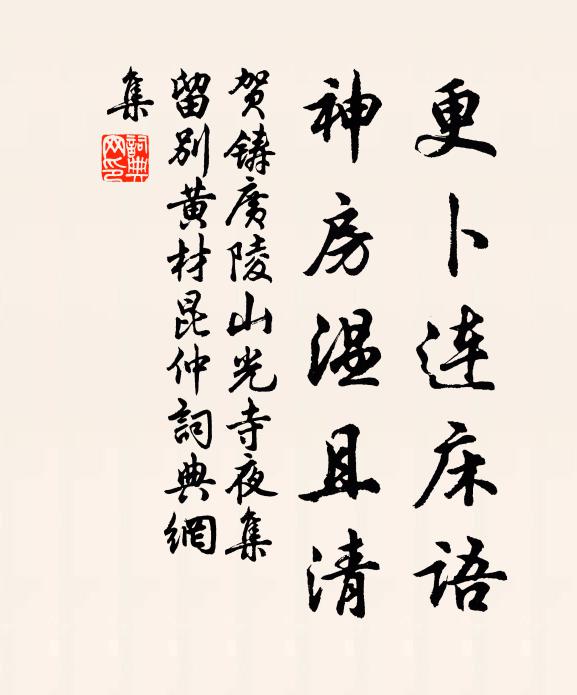 更卜连床语
神房温且清
贺铸廣陵山光寺夜集
留別黄材昆仲詞典網
集
詞典
网印